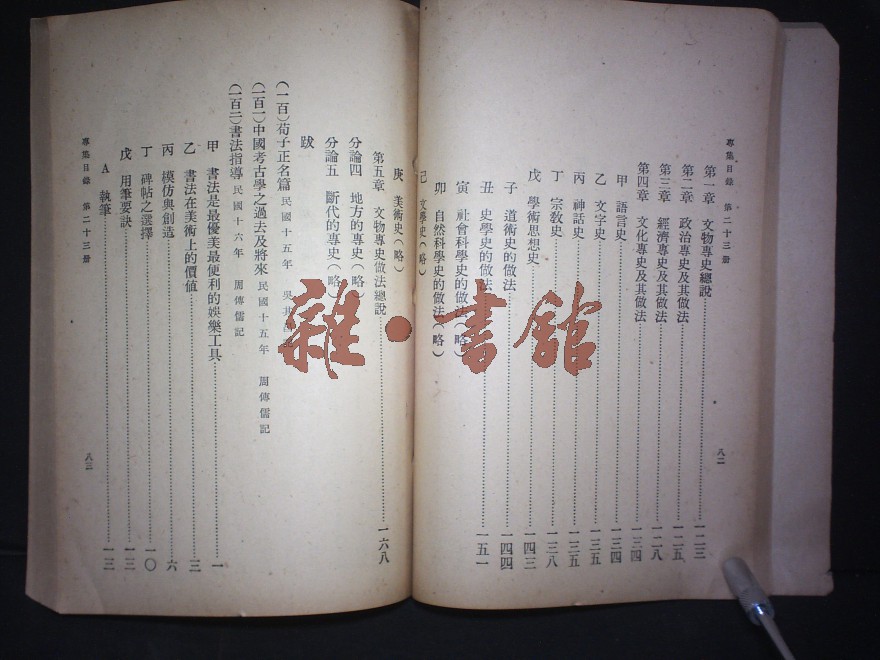 專集目錄　第二十三册
第一章　文物專史總說……一二三
第二章　政治專史及其做法……一二五
第三章　經濟專史及其做法……一二八
第四章　文化專史及其做法……一三四
甲　語言史……一三四
乙　文字史……一三五
丙　神話史……一三五
丁　宗教史……一三八
戊　學術思想史……一四三
子　道術史的做法……一四四
丑　史學史的做法……一五一
寅　社會科學史的做法（略）
卯　自然科學史的做法（略）
八二
己　文學史（略）
庚　美術史（略）
第五章　文物專史做法總說……一六八
分論四　地方的專史（略）
分論五　斷代的專史（略）
跋
（一百）荀子正名篇　民國十五年　吳其昌記
（一百一）中國考古學之過去及將來　民國十五年　周傳儒記
（一百二）書法指導　民國十六年　周傳儒記
甲　書法是最優美最便利的娛樂工具……一
乙　書法在美術上的價值……三
丙　模仿與創造……六
丁　碑帖之選擇……一〇
戊　用筆要訣……一三
A　執筆……一三
專集目錄　第二十三册
八三
雜·書館